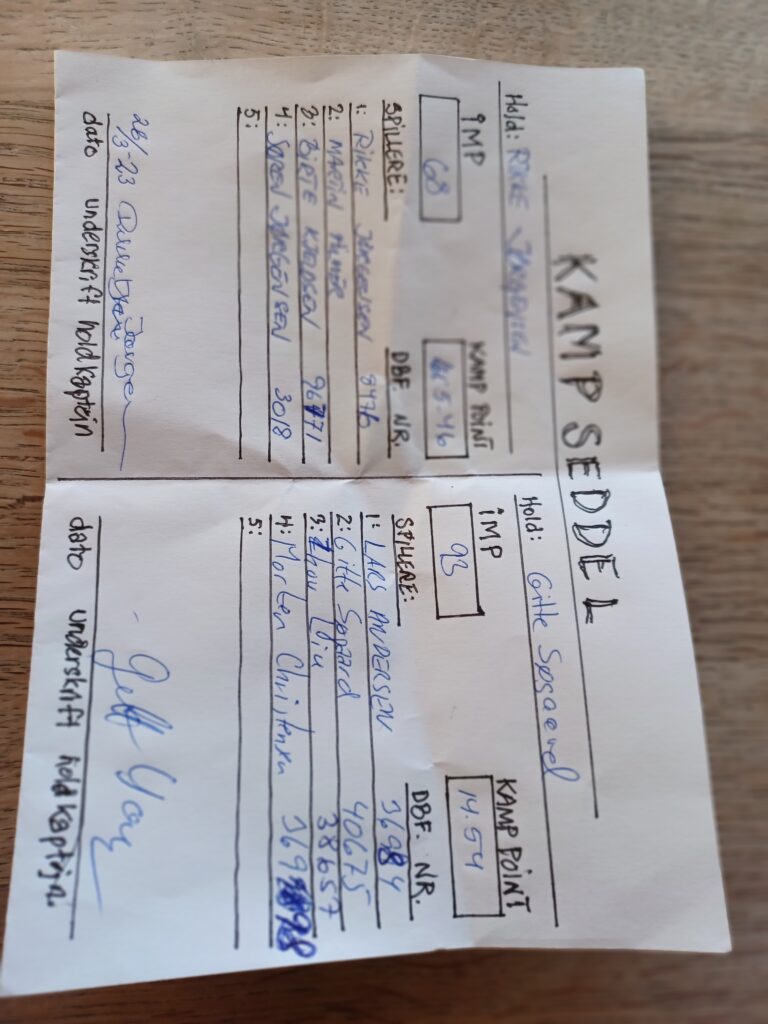 KAMPSEDDEL
Hold: RIKKE JØRGENSEN
IMP KAMP POINT
68 5.46
SPILLERE: DBF. NR.
1: RIKKE JØRGENSEN 8476
2: MARTIN
3: BIRTE KNUDSEN 96771
4: SØREN JØRGENSEN 3018
5:
28/3-23
dato underskrift holdkaptejn
Hold: Gitte Søgaard
IMP KAMP POINT
93 14.54
SPILLERE: DBF. NR.
1: LARS ANDERSEN 36984
2: Gitte Søgaard 40675
3: Zhou Liu 38657
4: Morten Christensen
5:
dato underskrift holdkaptejn